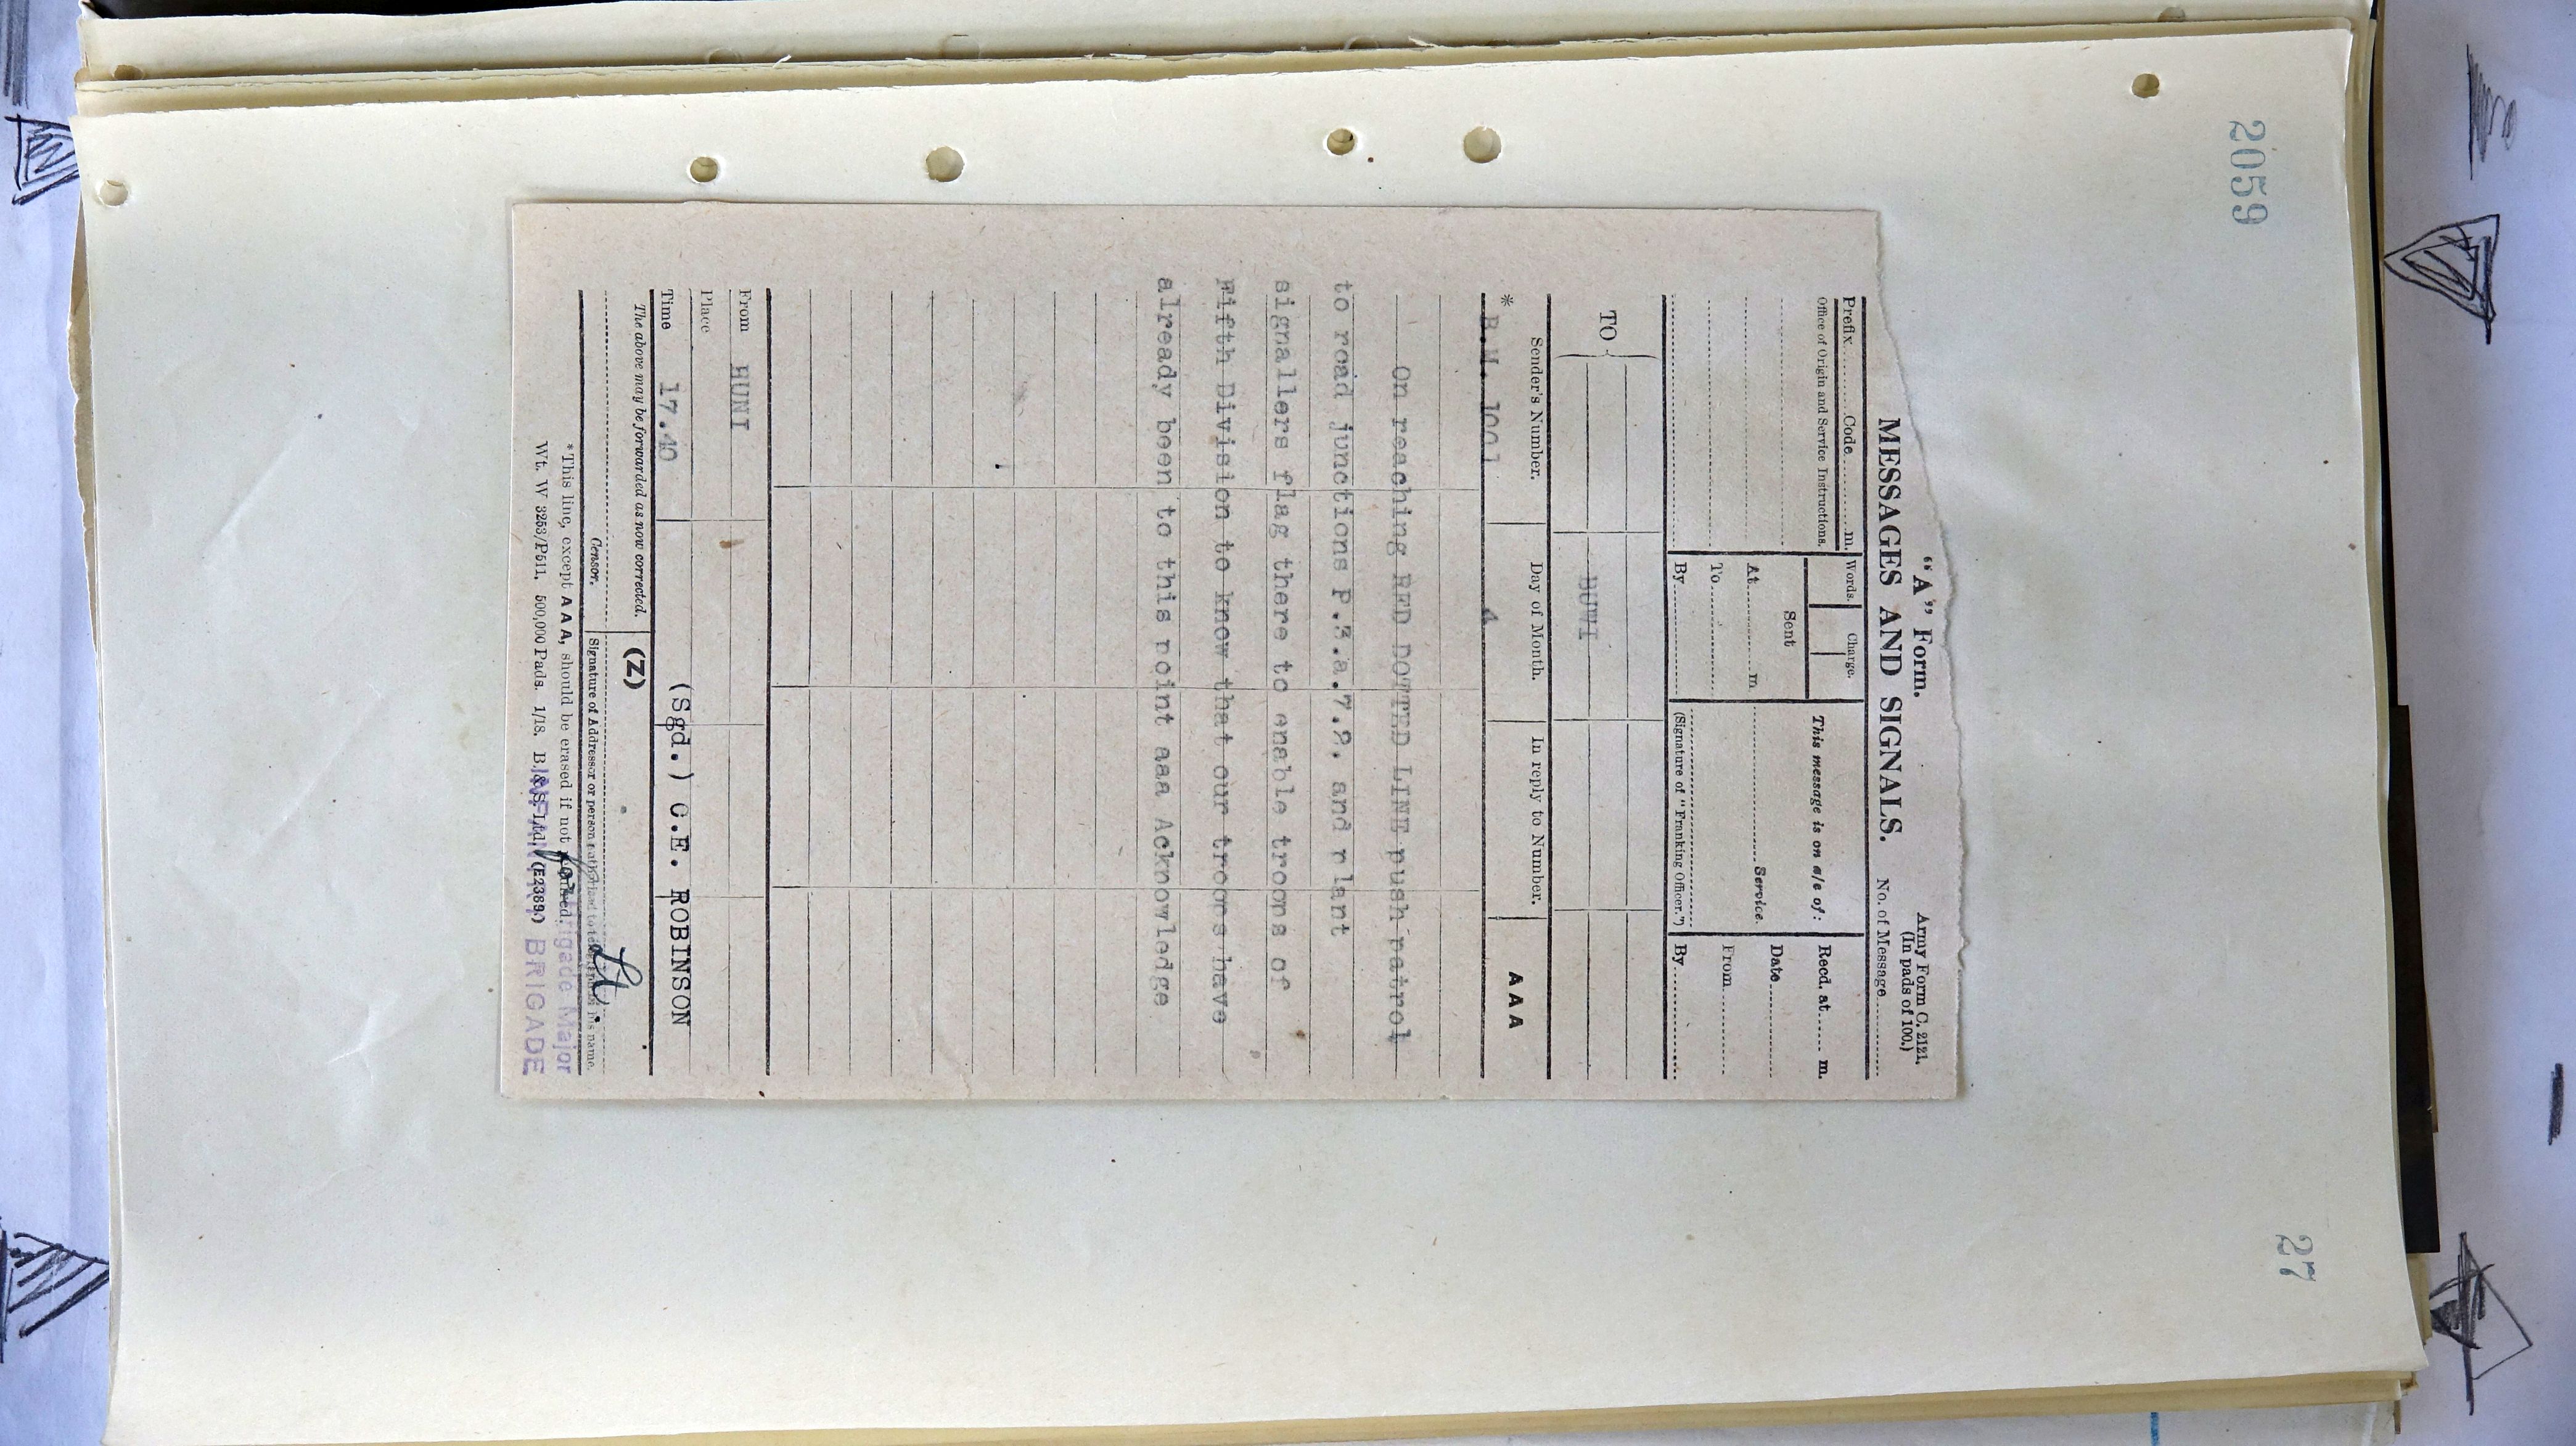 2059
27
"A" Form.
Army Form C. 2121.
(In pads of 100.)
MESSAGES AND SIGNALS.
No. of Message
Prefix Code m.
Words. Charge.
This message is on a/c of:
Recd. at m.
Office of Origin and Service Instructions.
Sent
Date
At m.
Service.
From
To
By
(Signature of "Franking Officer.")
By
TO
Sender's Number. Day of Month. In reply to Number. AAA
* B.M. 1001 4
On reaching RED DOTTED LINE push patrol
to road junctions P.3.a.7.9. and plant
signallers flag there to enable troops of
Fifth Division to know that our troops have
already been to this point aaa Acknowledge
From HUNI
Place
Time 17.40
(Sgd.) C.E. ROBINSON
The above may be forwarded as now corrected. (Z)
Lt.
Censor. Signature of Addressor or person authorised to telegraph in his name.
for Brigade Major
* This line, except AAA, should be erased if not required.
INFANTRY BRIGADE
Wt. W 3253/P511. 500,000 Pads. 1/18. B. & S. Ltd. (E2389.)